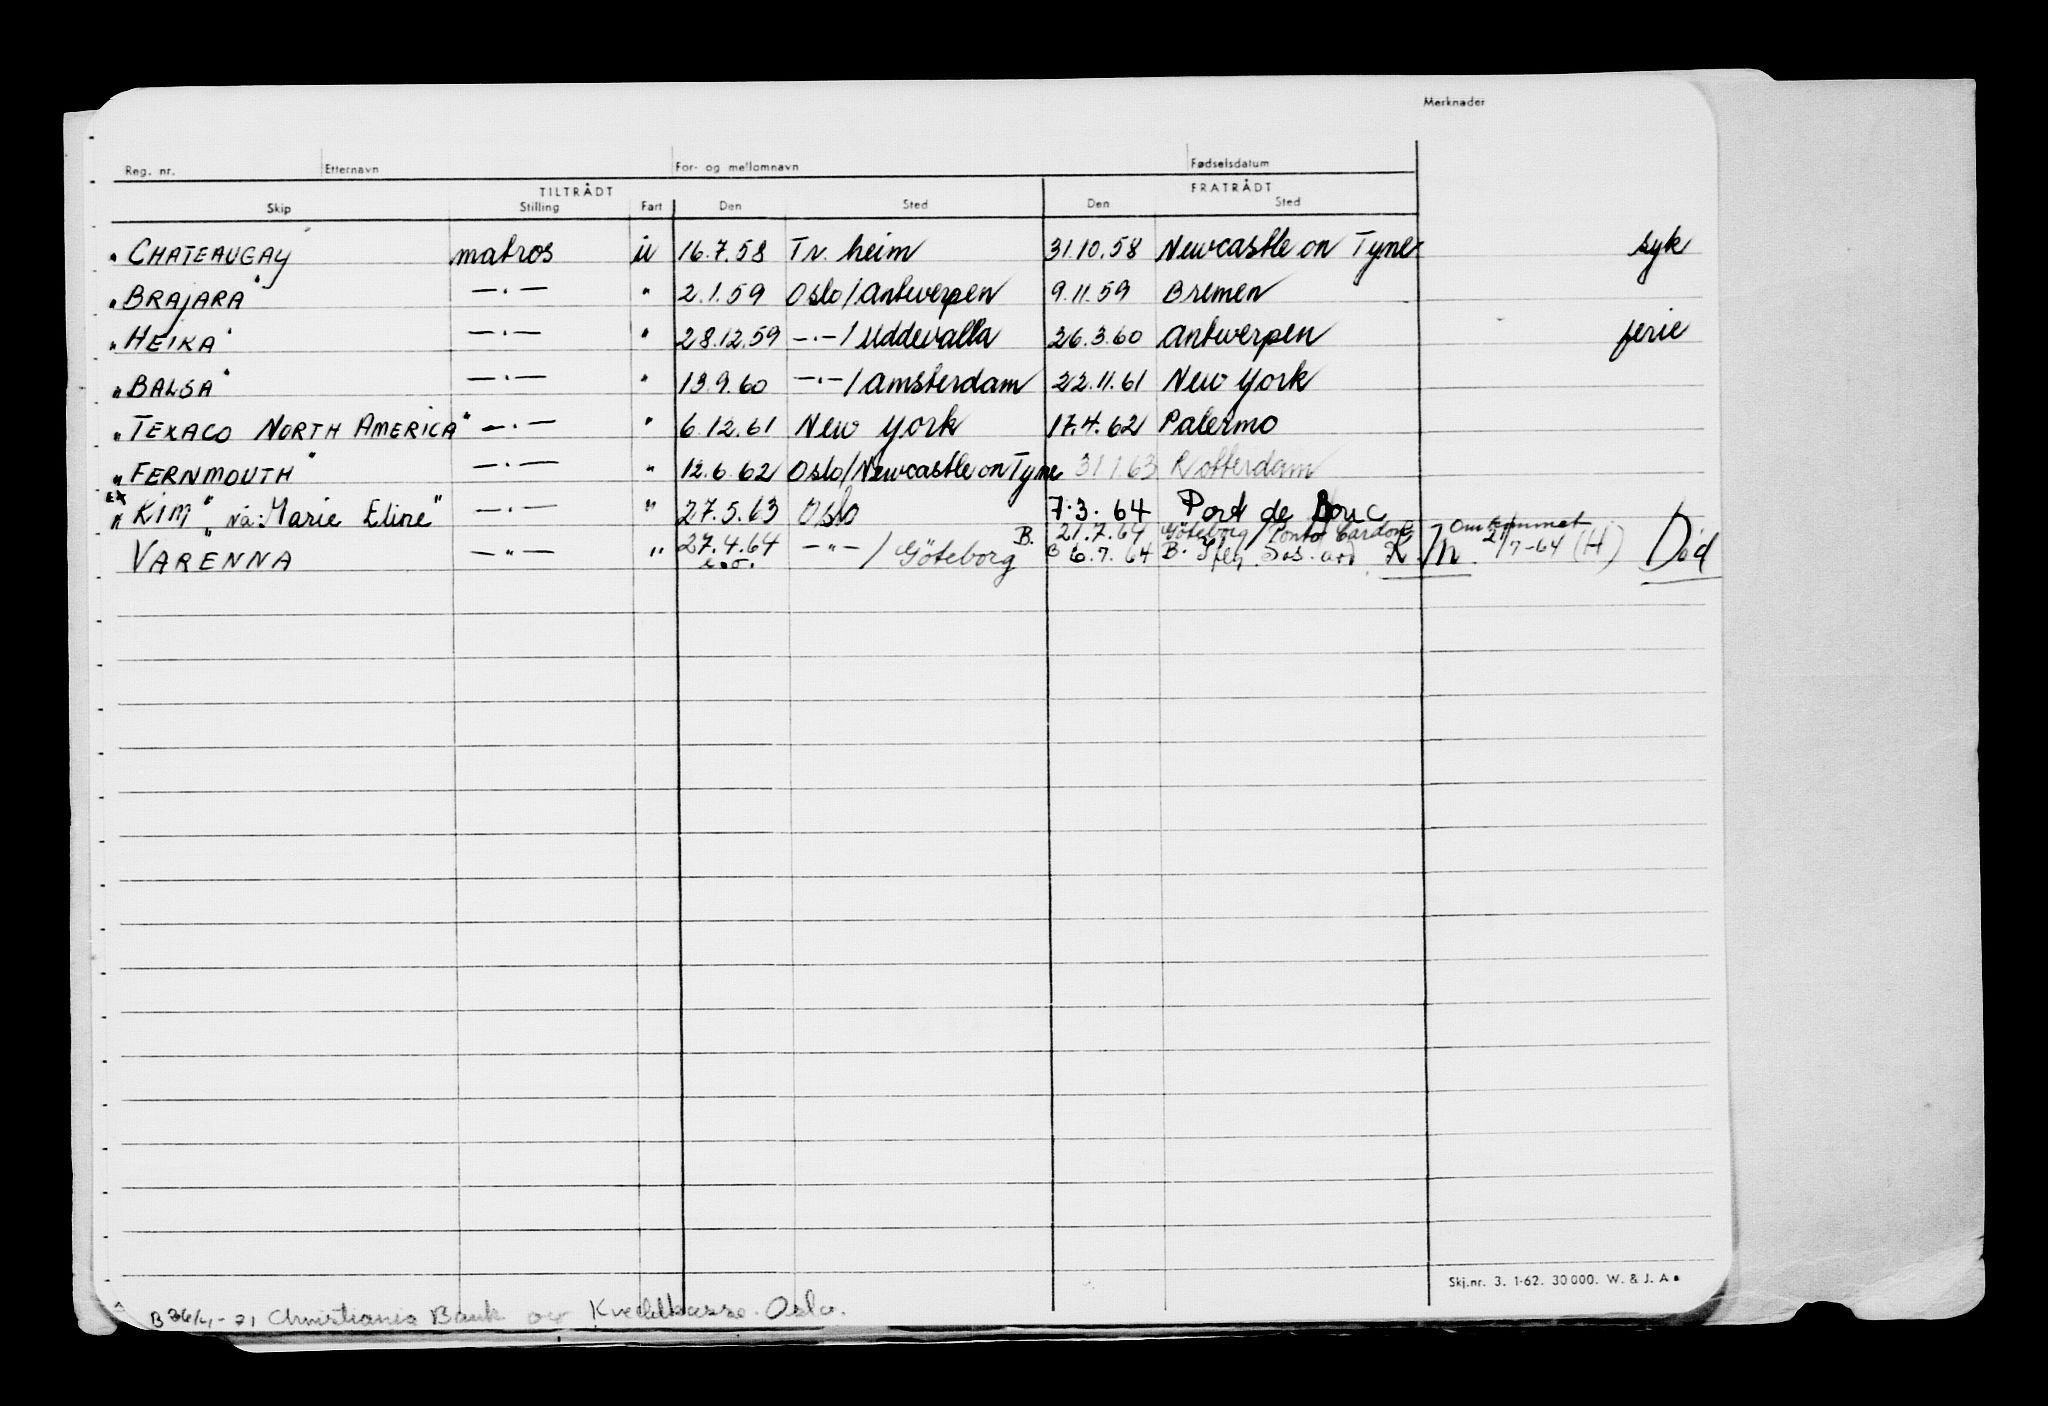 Merknader
Reg. nr. Etternavn For- og mellomnavn Fødselsdatum
TILTRÅDT FRATRÅDT
Skip Stilling Fart Den Sted Den Sted
" CHATEAUGAY" matros u 16.7.58 Tr. heim 31.10.58 Newcastle on Tyne syk
" BRAJARA" — . — " 2.1.59 Oslo/Antwerpen 9.11.59 Bremen
" HEIKA" — . — " 28.12.59 — . — / Uddevalla 26.3.60 Antwerpen ferie
" BALSA" — . — " 13.9.60 — . — / Amsterdam 22.11.61 New York
" TEXACO NORTH AMERICA" — . — " 6.12.61 New York 17.4.62 Palermo
" FERNMOUTH" — . — " 12.6.62 Oslo/Newcastle on Tyne 31.1.63 Rotterdam
ex " KIM" nå: "Marie Eline" — . — " 27.5.63 Oslo 7.3.64 Port de Bouc
B. 21.7.64 Göteborg / Ponto Cardon Omkommet
VARENNA — " — " 27.4.64 — " — / Göteborg B 6.7.64 B. 21/7-64 (H) Død
e.o.
Skj.nr. 3. 1-62. 30 000. W. & J. A.
B 26/4-71 Christiania Bank og Kreditkasse. Oslo.